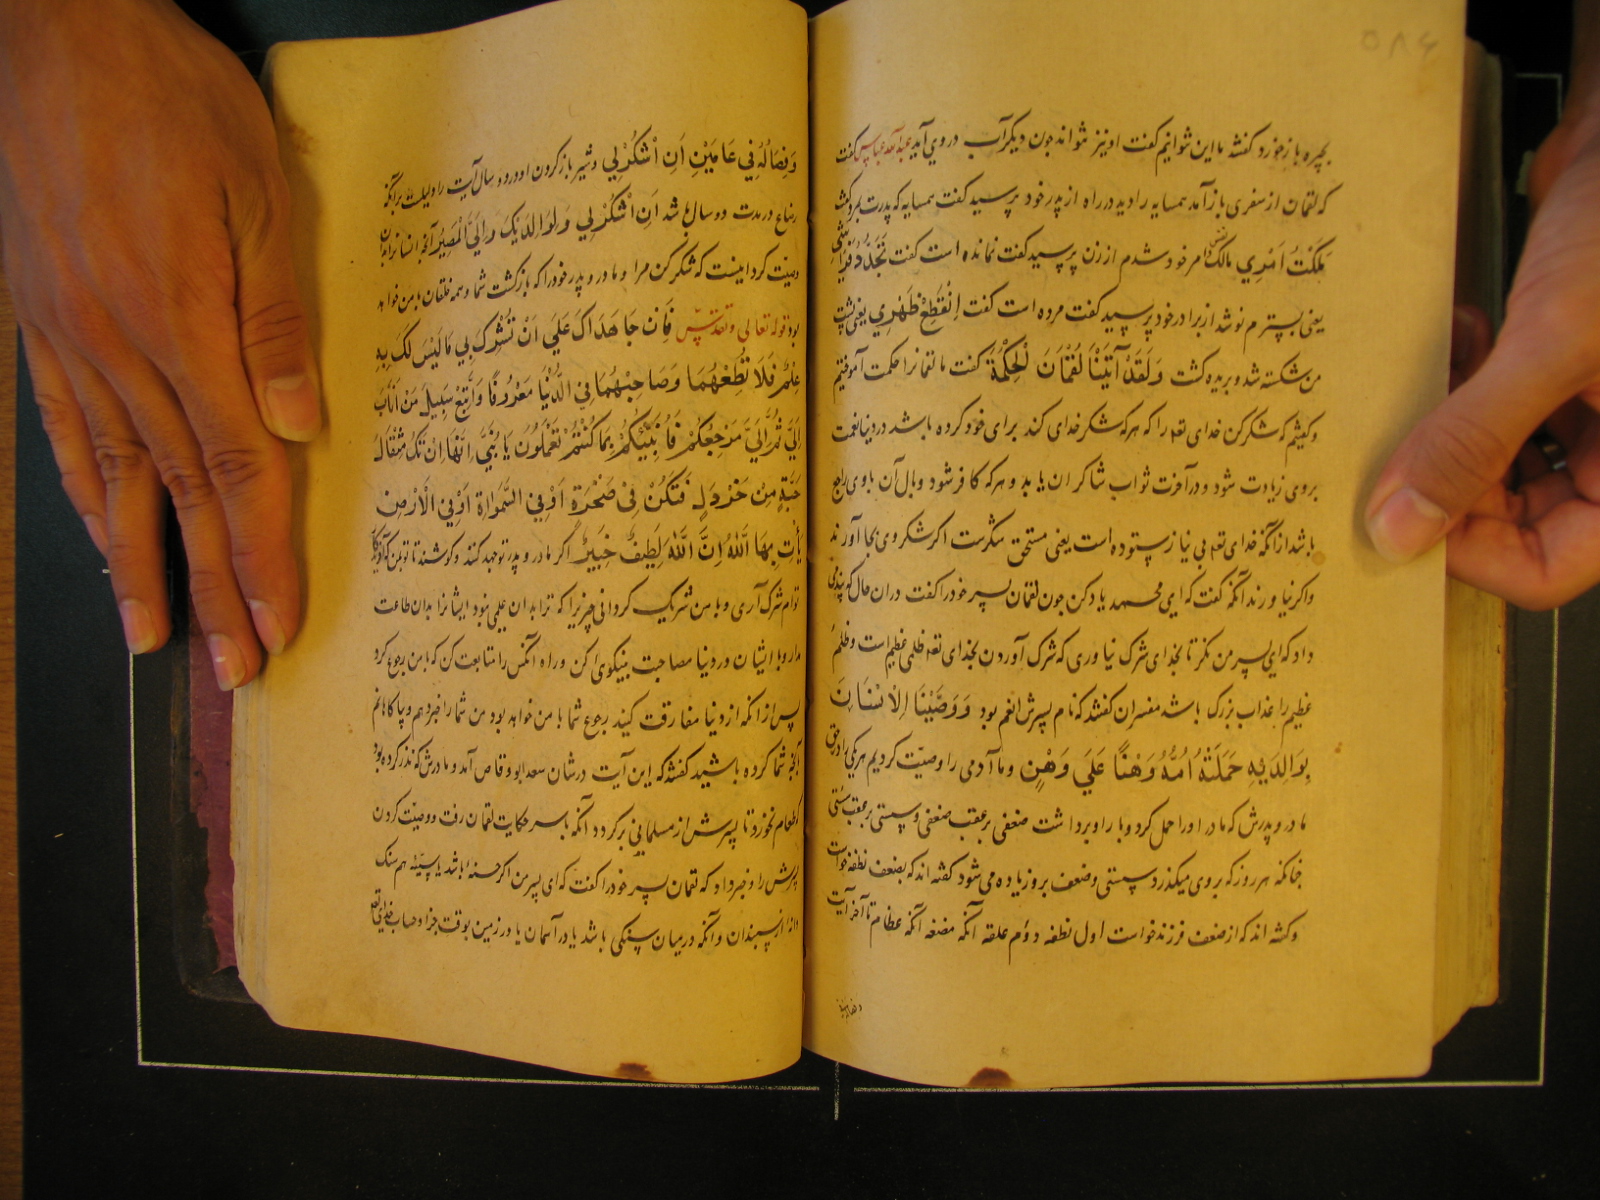 ۵۸۶
بحیره باز خورد گفتند ما این نتوانیم گفت او نیز نتواند چون دیگر آب در وی آید عبدالله عباس گفت
که لقمان از سفری باز آمد همسایه را دید در راه از پدر خود پرسید گفت همسایه که پدرت بمرد گفت
مَلَکْتُ اَمْرِي مالک امر خود شدم از زن پرسید گفت نمانده است گفت تَجَدَّدَ فِرَاشِي
یعنی بسترم نو شد از برادر خود پرسید گفت مرده است گفت اِنْقَطَعَ ظَهْرِي یعنی پشت
من شکسته شد و بریده گشت وَلَقَدْ آتَیْنَا لُقْمَانَ الْحِکْمَةَ گفت ما لقمانرا حکمت آموختیم
و گفتیم که شکر کن خدای تعه را که هر که شکر خدای کند برای خود کرده باشد در دنیا نعمت
بروی زیادت شود و در آخرت ثواب شاکران یابد و هر که کافر شود وبال آن باوی راجع
باشد از آنکه خدای تعه بی نیاز ستوده است یعنی مستحق شکرست اگر شکر وی بجا آورند
و اگر نیاورند آنکه گفت که ای محمد یاد کن چون لقمان پسر خود را گفت در آن حال که پند می
داد که ای پسر من نگر تا بخدای شرک نیاوری که شرک آوردن بخدای تعه ظلمی عظیم است و ظلم
عظیم را عذاب بزرگ باشد مفسران گفتند که نام پسرش انعم بود وَوَصَّیْنَا الْاِنْسَانَ
بِوَالِدَیْهِ حَمَلَتْهُ اُمُّهُ وَهْنًا عَلَي وَهْنٍ و ما آدمی را وصیّت کردیم هر یکی را در حق
مادر و پدرش که مادر او را حمل کرد و بار او برداشت ضعفی بر عقب ضعفی و سستی بر عقب سستی
چنانکه هر روز که بروی میگذرد سستی و ضعف بروز یاده می شود گفته اند که بضعف نطفه خواست
و گفته اند که از ضعف فرزند خواست اول نطفه دوّم علقه آنکه مضغه آنکه عظام تا آخر آیت
وَفِصَالُهُ فِي عَامَیْنِ اَنِ اشْکُرْلِي و شیر باز کردن او در دو سال آیت را دلیلست بر آنکه
رضاع در مدت دو سال باشد اَنِ اشْکُرْ لِي وَلِوَالِدَیْکَ وَاِلَيَّ الْمَصِیْرُ آنچه انسانرا بدان
وصیّت کرد اینست که شکر کن مرا و مادر و پدر خود را که بازگشت شما و همه خلقان با من خواهد
بود قوله تعالی و تقدّس فَاِنْ جَاهَدَاکَ عَلَي اَنْ تُشْرِکَ بِي مَا لَیْسَ لَکَ بِهِ
عِلْمٌ فَلَا تُطِعْهُمَا وَصَاحِبْهُمَا فِي الدُّنْیَا مَعْرُوفًا وَاتَّبِعْ سَبِیلَ مَنْ اَنَابَ
اِلَيَّ ثُمَّ اِلَيَّ مَرْجِعُکُمْ فَاُنَبِّئُکُمْ بِمَا کُنْتُمْ تَعْمَلُونَ یَا بُنَيَّ اِنَّهَا اِنْ تَکُ مِثْقَالَ
حَبَّةٍ مِنْ خَرْدَلٍ فَتَکُنْ فِي صَخْرَةٍ اَوْ فِي السَّمَوَاةِ اَوْ فِي الْاَرْضِ
یَأْتِ بِهَا اللّٰهُ اِنَّ اللّٰهَ لَطِیفٌ خَبِیْرٌ اگر مادر و پدر تو جهد کنند و کوشند تا تو بمن که
توام شرک آری و با من شریک گردانی چیزیرا که ترا بدان علمی نبود ایشانرا بدان طاعت
مدار و با ایشان در دنیا مصاحبت بنیکویی کن و راه آنکس را متابعت کن که با من رجوع کرد
پس از آنکه از دنیا مفارقت کنید رجوع شما با من خواهد بود من شما را خبر دهم و بیاکاهانم
آنچه شما کرده باشید گفتند که این آیت در شان سعد ابو وقاص آمد و مادرش که نذر کرده بود
که طعام نخورد تا پسرش از مسلمانی برگردد آنکه با سر حکایت لقمان رفت و وصیّت کردن
پسرش را و خبر داد که لقمان پسر خود را گفت که ای پسر من اگر حسنه باشد یا سیّئه هم سنک
دانه از سپندان و آنکه در میان سنکی باشد یا در آسمان یا در زمین بوقت جزا و حساب خدای تعه